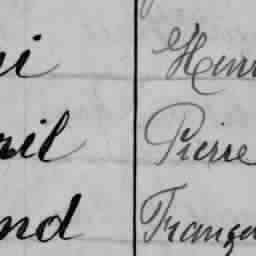 ni Henri
ril Pierre
nd Franço